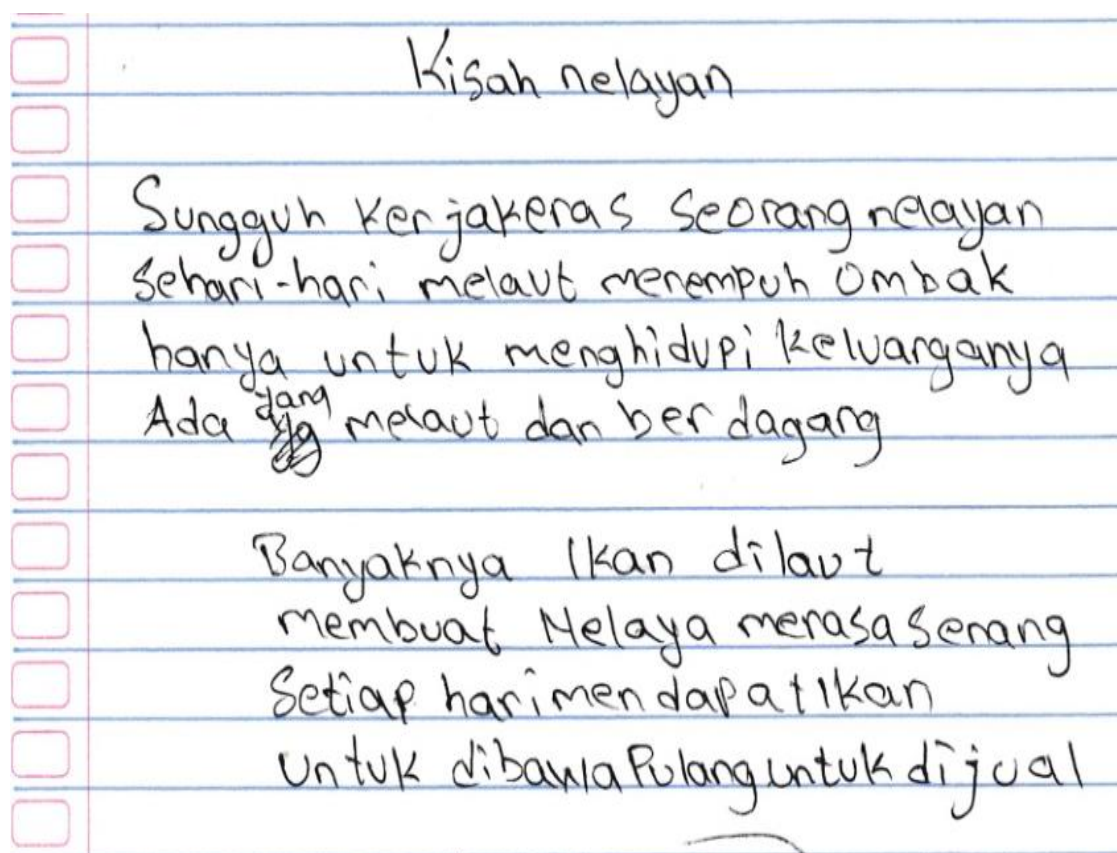 Kisah nelayan
Sungguh kerjakeras seorang nelayan
sehari-hari melaut menempuh ombak
hanya untuk menghidupi keluarganya
Ada yang melaut dan ber dagang
Banyaknya Ikan dilaut
membuat Nelaya merasa senang
Setiap hari mendapat Ikan
untuk dibawa Pulang untuk dijual